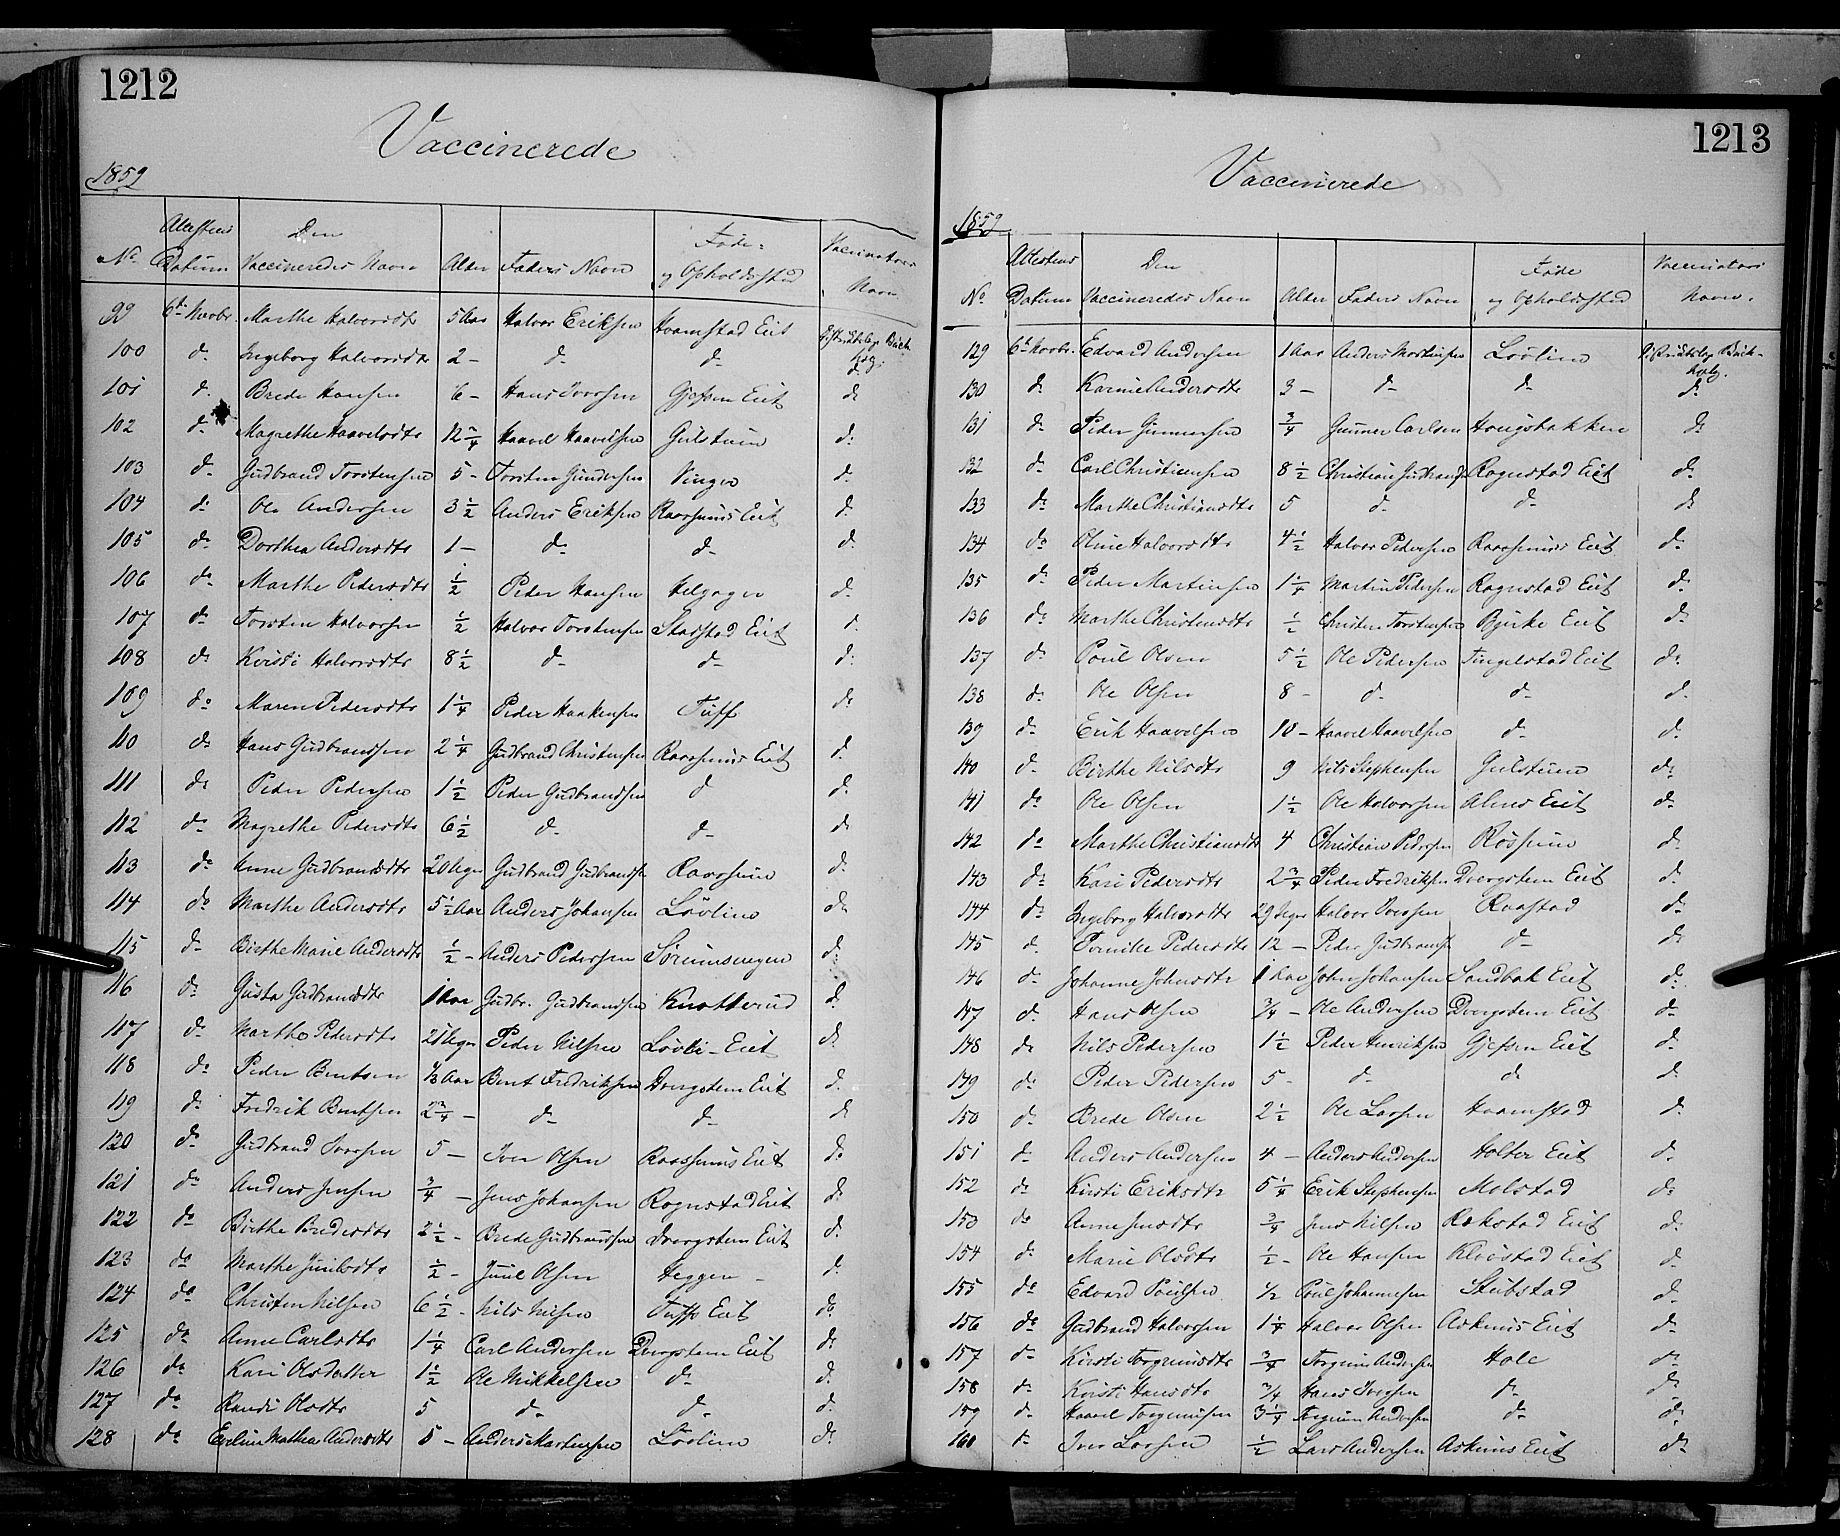 1212
Vaccinerede
1859
No Attestens Datum Den Vaccineredes Navn Alder Faders Navn Føde- og Opholdssted Vaccinators Navn
99 6te Novbr. Marthe Halvorsdtr 5 Aar Halvor Eriksen Hvamstad Eiet Distriktslæge Buchholz
100 do Ingeborg Halvorsdtr 2 - do do do
101 do Brede Hansen 6 - Hans Iversen Gjefsen Eiet do
102 do Magrethe Haavelsdtr 12 3/4 Haavel Haavelsen Gulstuen do
103 do Gudbrand Torstensen 5 - Torsten Gundersen Vinger do
104 do Ole Andersen 3 1/2 Anders Eriksen Raassums Eiet do
105 do Dorthea Andersdtr 1 - do do do
106 do Marthe Pedersdtr 1/2 Peder Hansen Helgager do
107 do Torsten Halvorsen 1/2 Halvor Torstensen Stadstad Eiet do
108 do Kirsti Halvorsdtr 8 1/2 do do do
109 do Maren Pedersdtr 1 1/4 Peder Haakensen Tuff do
110 do Hans Gudbrandsen 2 1/4 Gudbrand Christensen Raassums Eiet do
111 do Peder Pedersen 1 1/2 Peder Gudbrandsen do do
112 do Magrethe Pedersdtr 6 1/2 do do do
113 do Anne Gudbrandsdtr 20 Uger Gudbrand Gudbrands Raassum do
114 do Marthe Andersdtr 5 1/2 Aar Anders Johansen Løvlien do
115 do Birthe Marie Andersdtr 1/2 - Anders Pedersen Sørumsengen do
116 do Gusta Gudbrandsdtr 1 Aar Gudbr. Gudbrandsen Knatterud do
117 do Marthe Pedersdtr 21 Uger Peder Nilsen Løvli-Eiet do
118 do Peder Bentsen 1/3 Aar Bent Fredriksen Dvergsten Eiet do
119 do Fredrik Bentsen 2 3/4 - do do do
120 do Gudbrand Iversen 5 - Iver Olsen Raassums Eiet do
121 do Anders Jensen 3/4 - Jens Johansen Rognstad Eiet do
122 do Birthe Bredesdtr 2 1/2 - Brede Gudbrandsen Dvergsten Eiet do
123 do Marthe Juulsdtr 1/2 - Juul Olsen Heggen - do
124 do Christen Nilsen 6 1/2 - Nils Nilsen Tuffs Eiet do
125 do Anne Carlsdtr 1 1/4 Carl Andersen Dvergsten Eiet do
126 do Kari Olsdatter 1 1/2 Ole Mikkelsen do do
127 do Randi Olsdtr 5 do do do
128 do Eveline Mathea Andersdtr 5 - Anders Martinsen Løvlien do
1213
Vaccinerede
1859
No Attestens Datum Den Vaccineredes Navn Alder Faders Navn Føde og Opholdssted Vaccinators Navn.
129 6te Novbr. Edvard Andersen 1 Aar Anders Martinsen Løvlien Distriktslæge Buchholz.
130 do Karine Andersdtr 3 - do do do
131 do Peder Gunnersen 3/4 Gunner Carlsen Hougsbakken do
132 do Carl Christiansen 8 1/2 Christian Gudbrands Rognstad Eiet do
133 do Marthe Christiansdtr 5 do do do
134 do Oline Halvorsdtr 4 1/2 Halvor Pedersen Raassums Eiet do
135 do Peder Martinsen 1 1/4 Martin Pedersen Rognstad Eiet do
136 do Marthe Christensdtr 1/2 Christen Torstensen Bjørke Eiet do
137 do Poul Olsen 5 1/2 Ole Pedersen Tingelstad Eiet do
138 do Ole Olsen 8 - do do do
139 do Erik Haavelsen 10 - Haavel Haavelsen do do
140 do Birthe Nilsdtr 9 Nils Stephensen Gulstuen do
141 do Ole Olsen 1 1/2 Ole Halvorsen Alms Eiet do
142 do Marthe Christiansdtr 4 Christian Pedersen Røssum do
143 do Kari Pedersdtr 2 3/4 Peder Fredriksen Dvergsten Eiet do
144 do Ingeborg Halvorsdtr 29 Uger Halvor Iversen Raastad do
145 do Pernille Pedersdtr 12 - Peder Gudbrands do do
146 do Johanne Johnsdtr 1 Aar John Johansen Sandbak Eiet do
147 do Hans Olsen 3/4 - Ole Andersen Dvergsten Eiet do
148 do Nils Pedersen 1 1/2 Peder Henriksen Gjefsen Eiet do
149 do Peder Pedersen 5 - do do do
150 do Brede Olsen 2 1/2 Ole Larsen Hvamstad do
151 do Anders Andersen 4 - Anders Andersen Holter Eiet do
152 do Kirsti Eriksdtr 5 1/4 Erik Stephensen Molstad do
153 do Anne Jensdtr 3/4 Jens Nilsen Rækstad Eiet do
154 do Marie Olsdtr 1/2 - Ole Hansen Kløvstad Eiet do
155 do Edvard Poulsen 1/2 Poul Johannesen Stubstad do
156 do Gudbrand Halvorsen 1 1/4 Halvor Olsen Askims Eiet do
157 do Kirsti Torgrimsdtr 3/4 Torgrim Andersen Hole do
158 do Kirsti Hansdtr 3/4 Hans Iversen do do
159 do Haavel Torgrimsen 3 1/4 Torgrim Andersen do do
160 do Iver Larsen 1/2 Lars Andersen Askims Eiet do